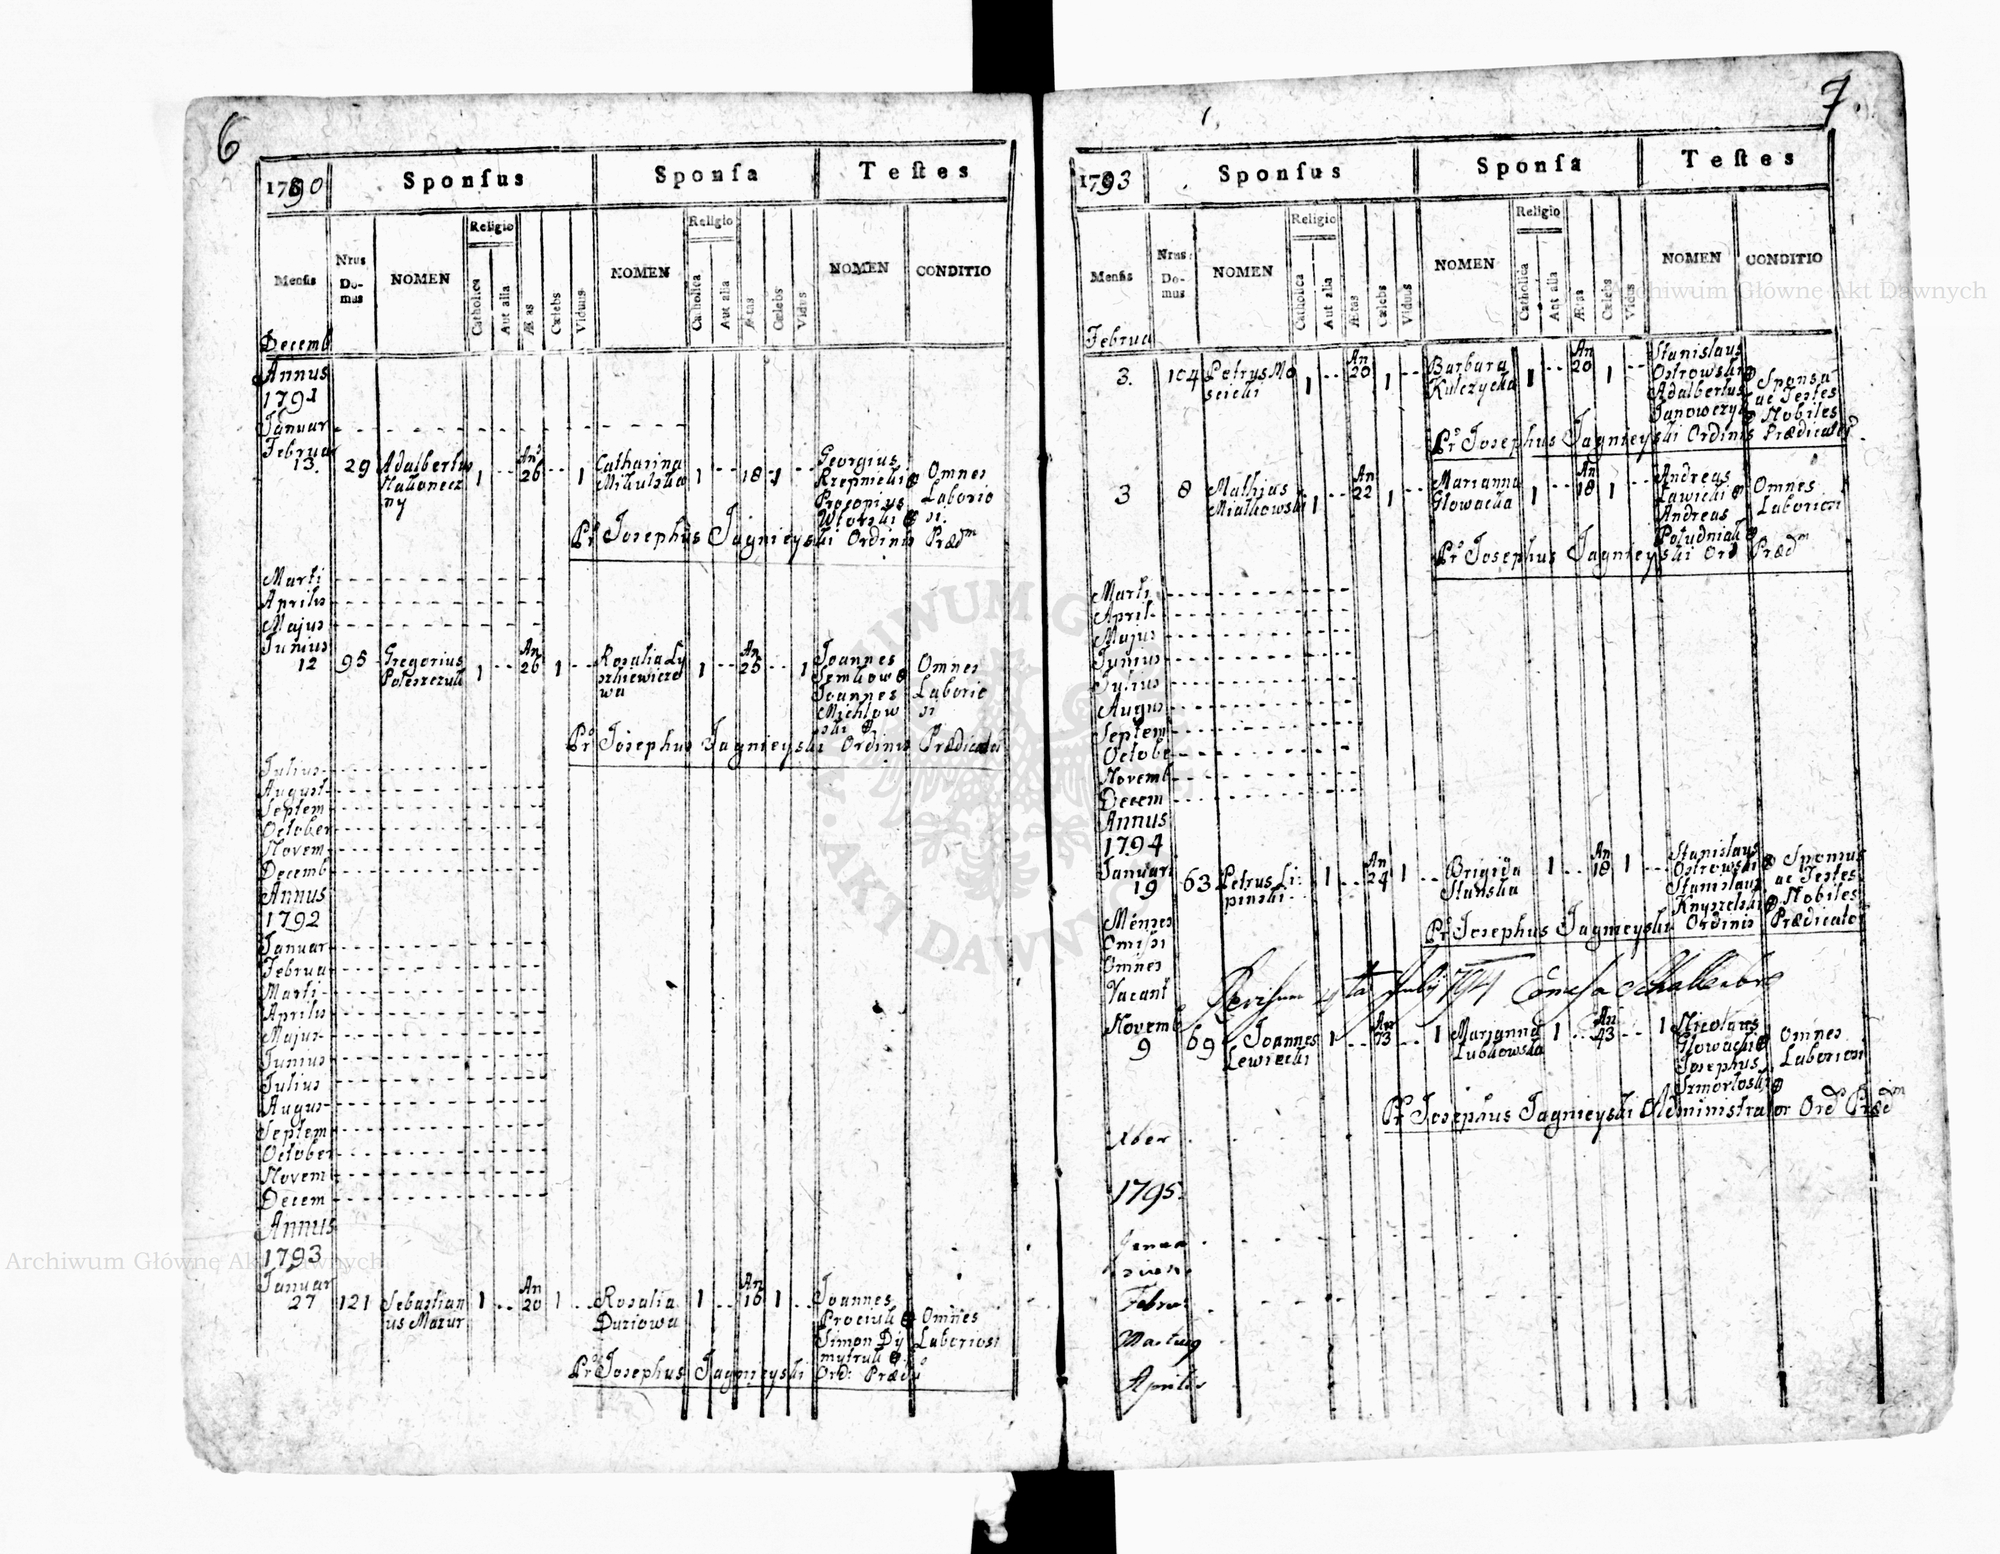 6
1790 Sponsus Sponsa Testes
Religio Religio
Mensis Nrus Domus NOMEN Catholica Aut alia Ætas Cælebs Viduus NOMEN Catholica Aut alia Ætas Cælebs Vidua NOMEN CONDITIO
Decemb
Annus
1791
Januar
Februar
13. 29 Adalbertus 1 An 26 1 Catharina 1 18 1 Georgius Omnes
Mikulska Laborio
ny Procopius si.
Pr Josephus Jagnieyski Ordinis Præd^m
Marti
Aprilis
Majus
Junius
12 95 Gregorius 1 An 26 1 Rosalia Ly 1 An 25 1 Joannes Omnes
Poleszczuk szkiewiczo Semkow Laborio
wa Joannes si
Michlow
ski
Pr Josephus Jagnieyski Ordinis Prædicato
Julius
August
Septem
October
Novem
Decemb
Annus
1792
Januar
Februa
Marti
Aprilis
Majus
Junius
Julius
Augus
Septem
October
Novem
Decem
Annus
1793
Januar
27 121 Sebastian 1 An 20 1 Rosalia 1 An 16 1 Joannes
us Mazur Duziowa Prociuk Omnes
Simon Dy Laboriosi
mytruk
Pr Josephus Jagnieyski Ord: Præd
7.
1793 Sponsus Sponsa Testes
Religio Religio
Mensis Nrus Domus NOMEN Catholica Aut alia Ætas Cælebs Viduus NOMEN Catholica Aut alia Ætas Cælebs Vidua NOMEN CONDITIO
Februa
3. 104 Petrus Mo 1 An 20 1 Barbara 1 An 20 1 Stanislaus
scicki Kulczycka Ostrowski Sponsa
Adalbertus ac Testes
Janowczyk Nobiles
Pr Josephus Jagnieyski Ordinis Prædicator
3 8 Mathias 1 An 22 1 Marianna 1 An 18 1 Andreas Omnes
Miałkowski Głowacka Sawicki Laboriosi
Andreas
Południak
Pr Josephus Jagnieyski Ord Præd^m
Marti
April
Majus
Junius
Julius
Augus
Septem
Octobe
Novemb
Decem
Annus
1794
Januari
19 63 Petrus Li 1 An 24 1 Brigida 1 An 18 1 Stanislaus Sponsus
pinski Stanska Ostrowski ac Testes
Stanislaus Nobiles
Knyszelski
Pr Josephus Jagnieyski Ordinis Prædicato
Menses
Omissi
Omnes
Vacant
Revisum July 794
Novemb
9 69 Joannes 1 An 73 1 Marianna 1 An 43 1 Nicolaus Omnes
Lewiecki Lubkowska Głowacki Laboriosi
Josephus
Pr Josephus Jagnieyski Administrator Ord Præd^m
Xber
1795.
Febru
Martius
Aprilis
Archiwum Główne Akt Dawnych
Archiwum Główne Akt Dawnych